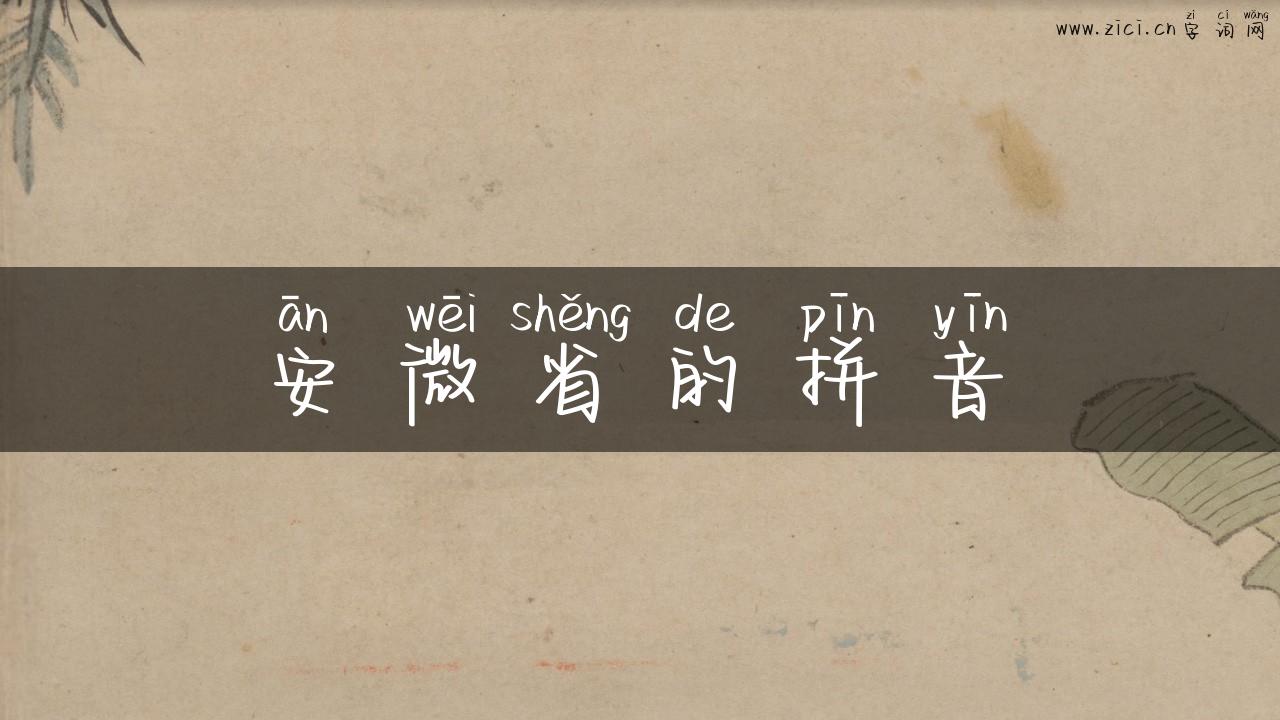 zì cí wǎng
www.zici.cn 字 词 网
ān wēi shěng de pīn yīn
安 微 省 的 拼 音